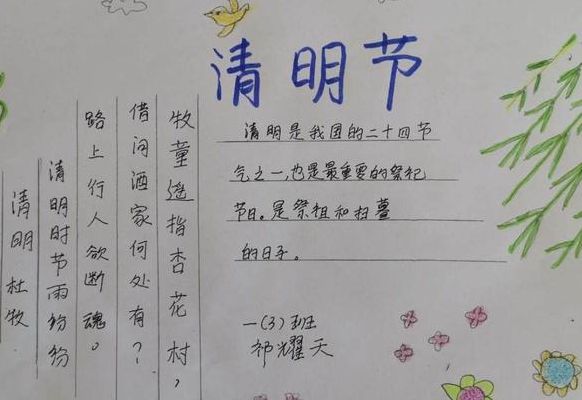 清明节
清明是我国的二十四节
气之一,也是最重要的祭祀
节日。是祭祖和扫墓
的日子。
一(3)班
祁耀天
清明 杜牧
清明时节雨纷纷
路上行人欲断魂。
借问酒家何处有?
牧童遥指杏花村,